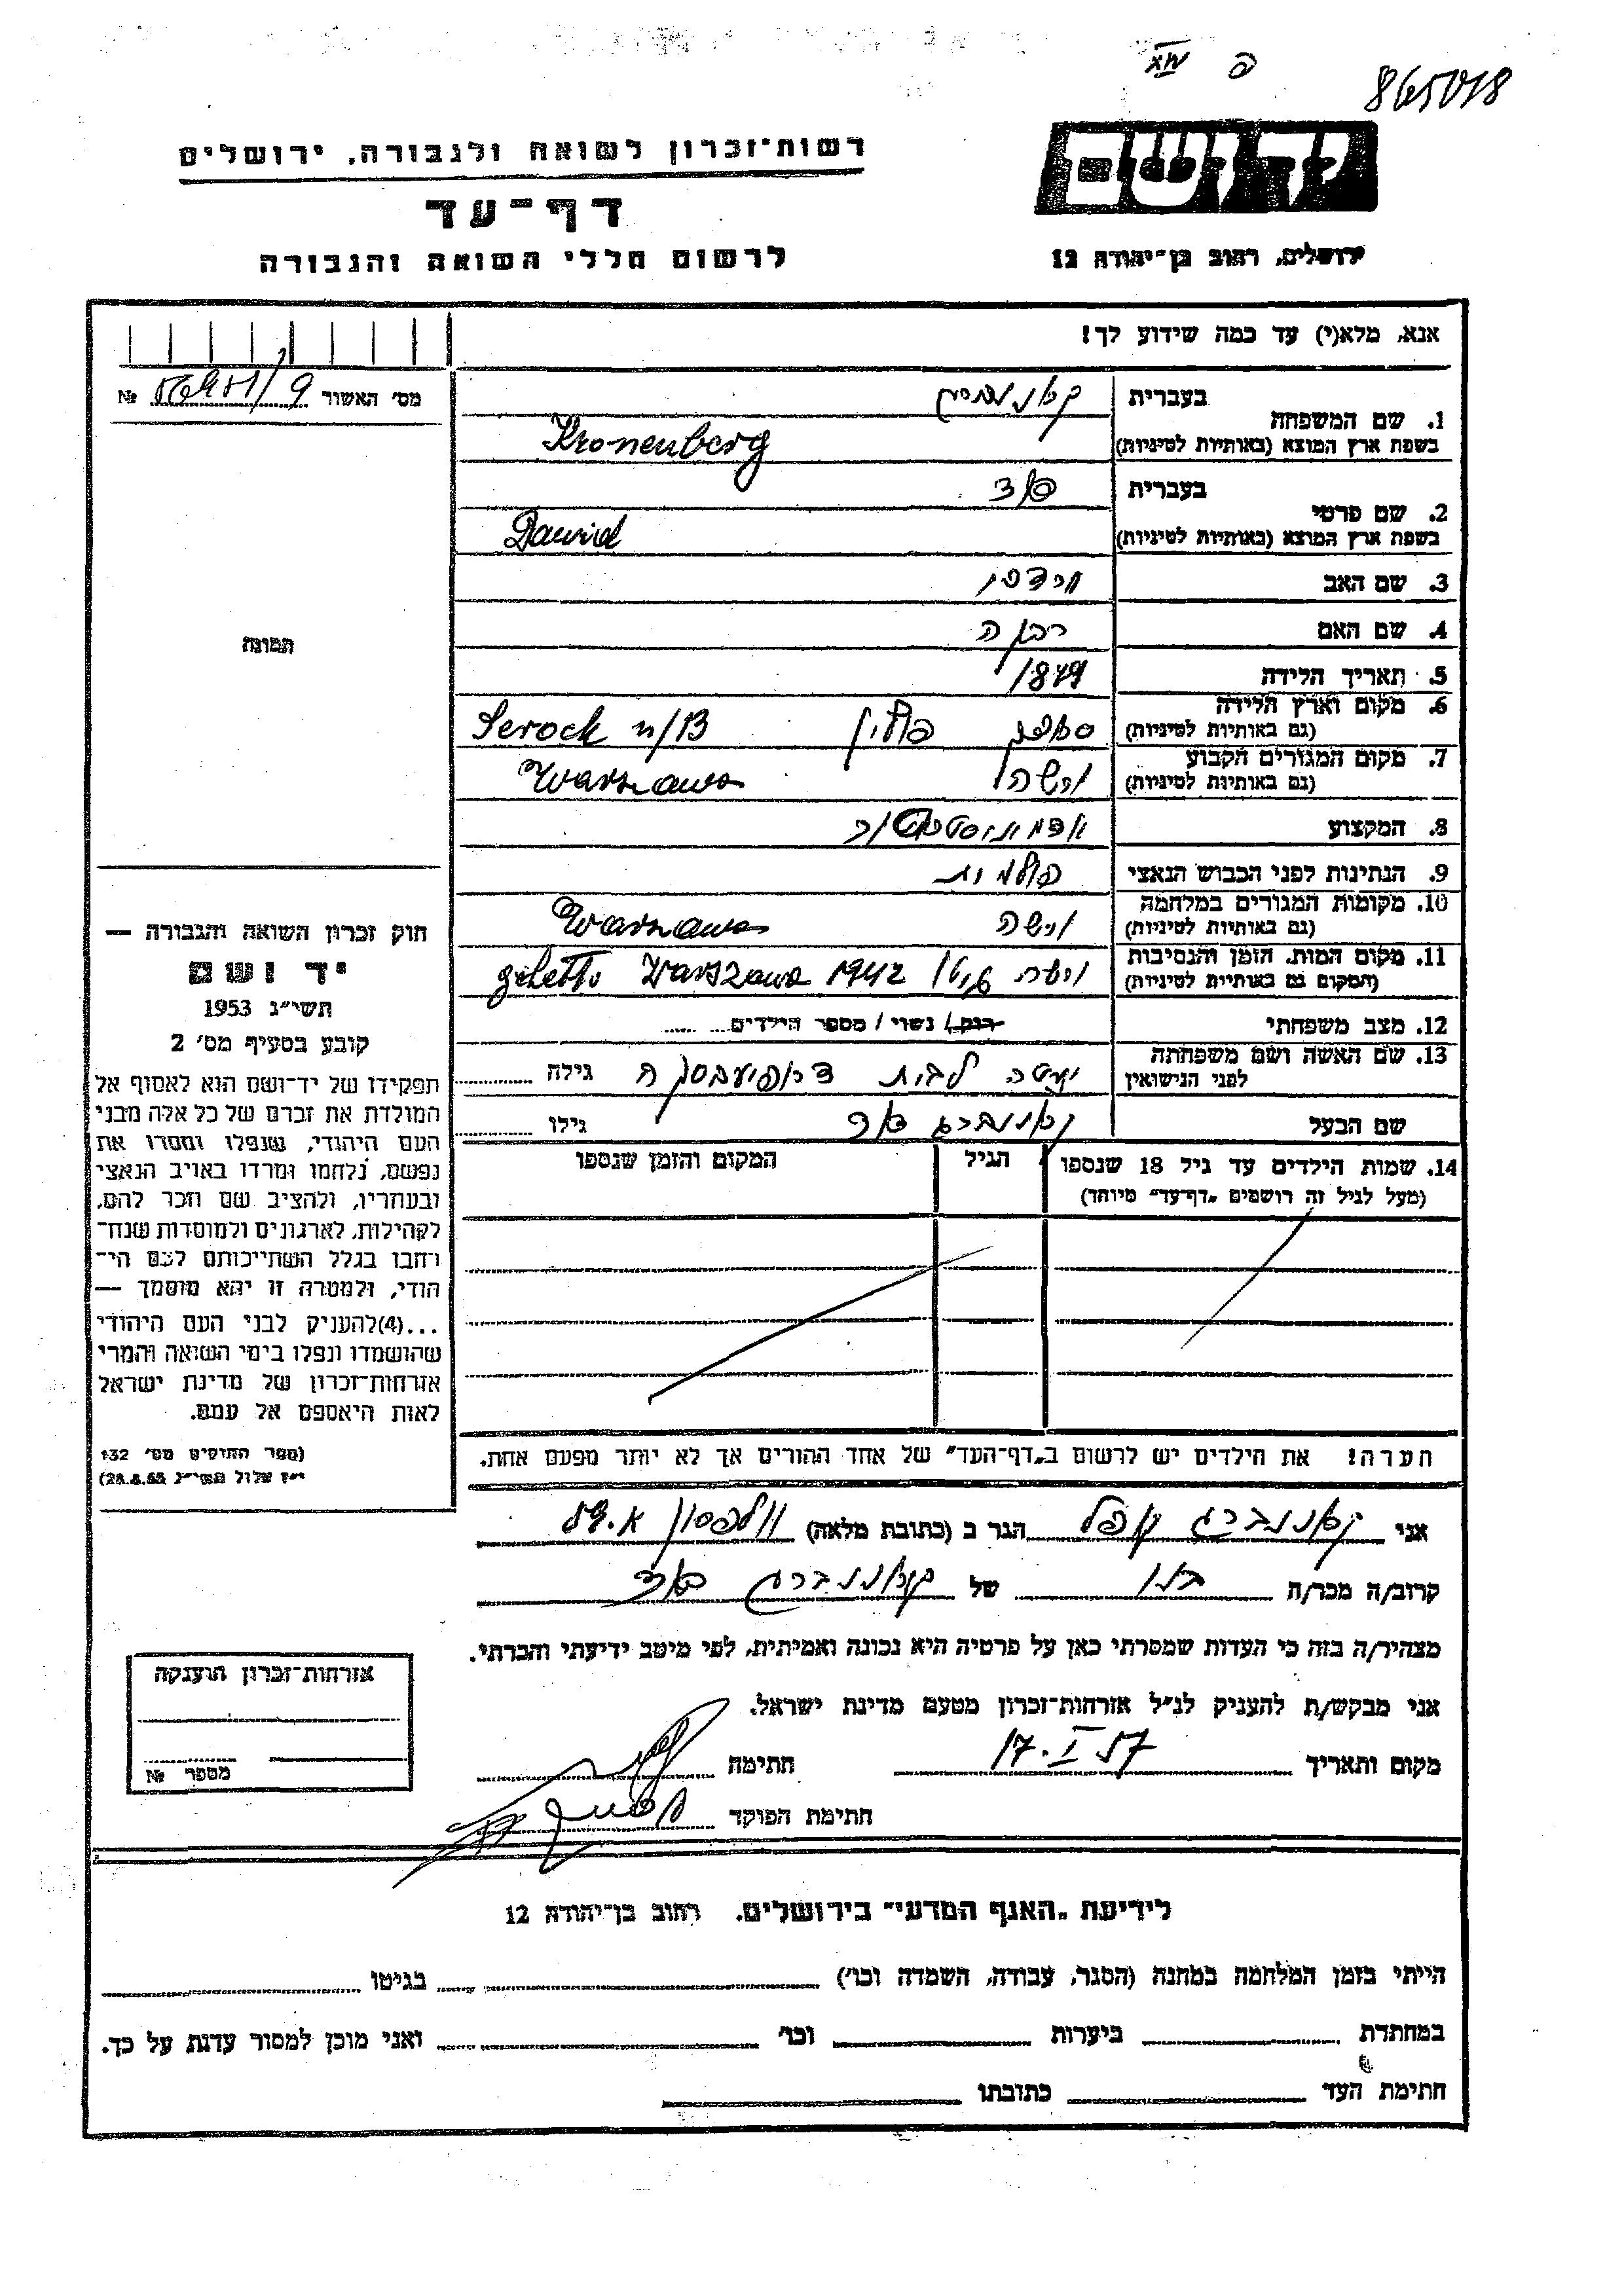 865018
רשות־זכרון לשואה ולגבורה, ירושלים
יד ושם
דף־עד
לרשום חללי השואה והגבורה
ירושלים, רחוב בן־יהודה 12
אנא, מלא(י) עד כמה שידוע לך!
מס׳ האשור №
1. שם המשפחה בעברית
בשפת ארץ המוצא (באותיות לטיניות) Kronenberg
2. שם פרטי בעברית
בשפת ארץ המוצא (באותיות לטיניות) Dawid
3. שם האב
4. שם האם רבקה
5. תאריך הלידה 1879
6. מקום וארץ הלידה (גם באותיות לטיניות) סרוצק פולין Serock n/B
7. מקום המגורים הקבוע (גם באותיות לטיניות) ורשה Warszawa
8. המקצוע
9. הנתינות לפני הכבוש הנאצי פולנית
10. מקומות המגורים במלחמה (גם באותיות לטיניות) ורשה Warszawa
11. מקום המות, הזמן והנסיבות (המקום גם באותיות לטיניות) ורשה גיטו 1942 Warszawa ghetto
12. מצב משפחתי רוק/ נשוי / מספר הילדים
13. שם האשה ושם משפחתה לפני הנישואין לבית גילה
שם הבעל קרוננברג דוד גילו
14. שמות הילדים עד גיל 18 שנספו הגיל המקום והזמן שנספו
(מעל לגיל זה רושמים „דף־עד״ מיוחד)
הערה! את הילדים יש לרשום ב„דף־העד״ של אחד ההורים אך לא יותר מפעם אחת.
תמונה
חוק זכרון השואה והגבורה —
יד ושם
תשי״ג 1953
קובע בסעיף מס׳ 2
תפקידו של יד־ושם הוא לאסוף אל
המולדת את זכרם של כל אלה מבני
העם היהודי, שנפלו ומסרו את
נפשם, נלחמו ומרדו באויב הנאצי
ובעוזריו, ולהציב שם וזכר להם,
לקהילות, לארגונים ולמוסדות שנח־
רחבו בגלל השתייכותם לעם הי־
הודי, ולמטרה זו יהא מוסמך —
...(4)להעניק לבני העם היהודי
שהושמדו ונפלו בימי השואה והמרי
אזרחות־זכרון של מדינת ישראל
לאות היאספם אל עמם.
(ספר החוקים מס׳ 132
י״ז אלול תשי״ג 28.8.53)
אני קרוננברג קופל הגר ב (כתובת מלאה) וולפסון
קרוב/ה מכר/ה בנו של קרוננברג דוד
מצהיר/ה בזה כי העדות שמסרתי כאן על פרטיה היא נכונה ואמיתית, לפי מיטב ידיעתי והכרתי.
אני מבקש/ת להעניק לנ״ל אזרחות־זכרון מטעם מדינת ישראל.
מקום ותאריך 17.I.57 חתימה
חתימת הפוקד
אזרחות־זכרון הוענקה
מספר №
לידיעת „האגף המדעי״ בירושלים, רחוב בן־יהודה 12
הייתי בזמן המלחמה במחנה (הסגר, עבודה, השמדה וכו׳) בגיטו
במחתרת ביערות וכו׳ ואני מוכן למסור עדות על כך.
חתימת העד כתובתו